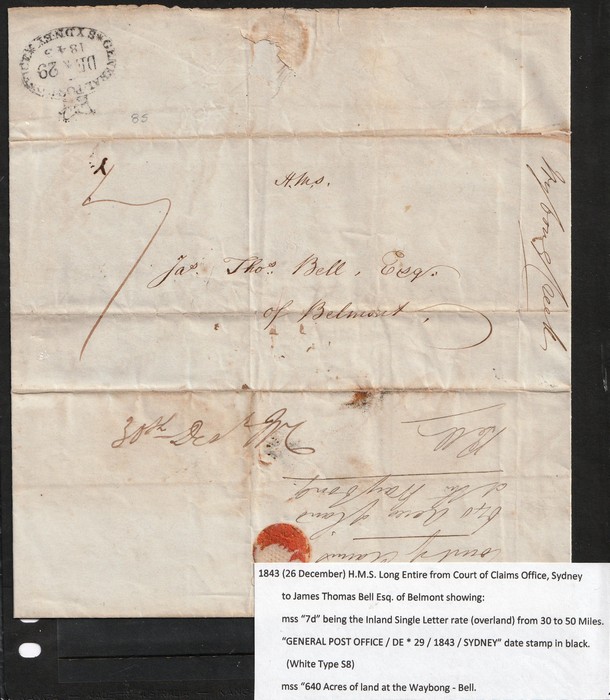 GENERAL POST OFFICE * SYDNEY *
DE * 29
1843
85
7
H.M.S.
Jas. Thos. Bell, Esq.
of Belmont,
Bell
640 Acres of land
at the Waybong.
Court of Claims
1843 (26 December) H.M.S. Long Entire from Court of Claims Office, Sydney
to James Thomas Bell Esq. of Belmont showing:
mss “7d” being the Inland Single Letter rate (overland) from 30 to 50 Miles.
“GENERAL POST OFFICE / DE * 29 / 1843 / SYDNEY” date stamp in black.
(White Type S8)
mss “640 Acres of land at the Waybong - Bell.